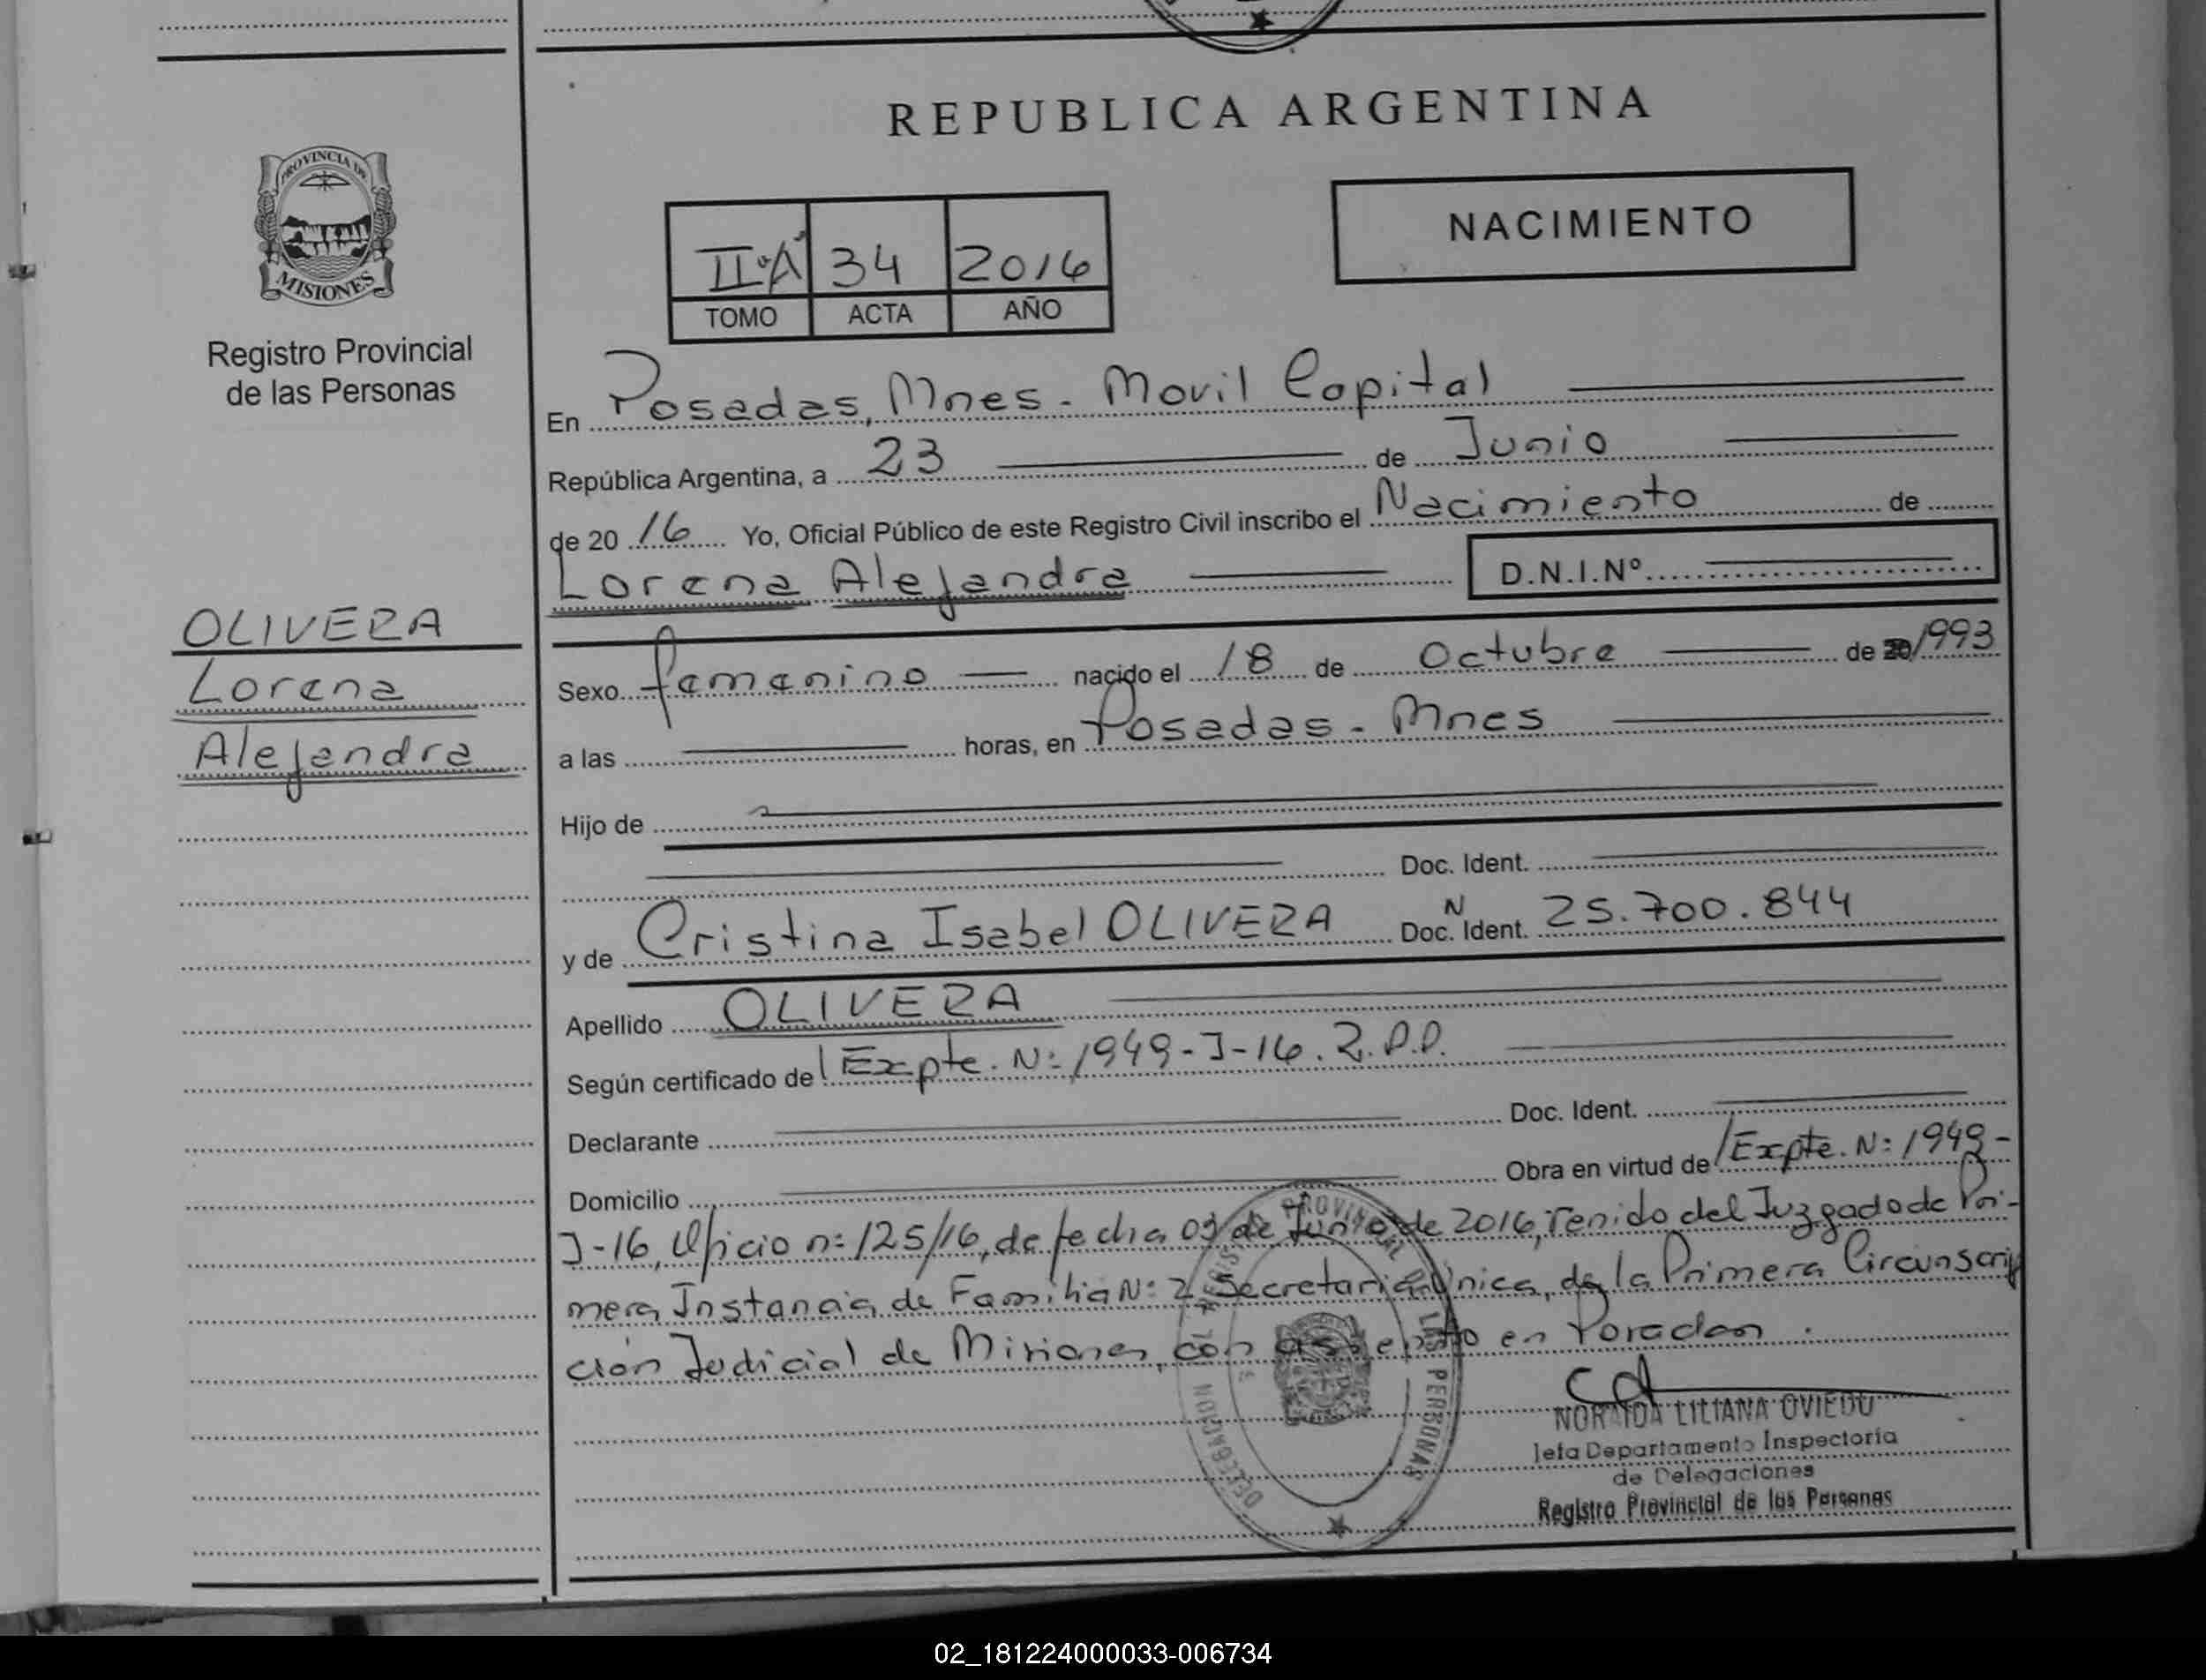 REPUBLICA ARGENTINA
PROVINCIA DE
MISIONES
Registro Provincial
de las Personas
NACIMIENTO
II·A 34 2016
TOMO ACTA AÑO
En Posadas, Mnes - Movil Capital
República Argentina, a 23 de Junio
de 20 16 Yo, Oficial Público de este Registro Civil inscribo el Nacimiento de
Lorena Alejandra D.N.I.Nº
OLIVERA
Lorena
Alejandra
Sexo femenino nacido el 18 de Octubre de 1993
a las horas, en Posadas - Mnes
Hijo de
Doc. Ident.
y de Cristina Isabel OLIVERA Doc. N Ident. 25.700.844
Apellido OLIVERA
Según certificado del Expte. N: 1949-J-16. R.P.P.
Declarante Doc. Ident.
Domicilio Obra en virtud del Expte. N: 1949-
J-16, Oficio n: 125/16, de fecha 03 de Junio de 2016, venido del Juzgado de Pri-
mera Instancia de Familia N: 2 Secretaria Única, de la Primera Circunscrip
ción Judicial de Misiones, con asiento en Posadas.
NORAIDA LILIANA OVIEDO
Jefa Departamento Inspectoría
de Delegaciones
Registro Provincial de las Personas
PROVINCIAL DE LAS PERSONAS
02_181224000033-006734